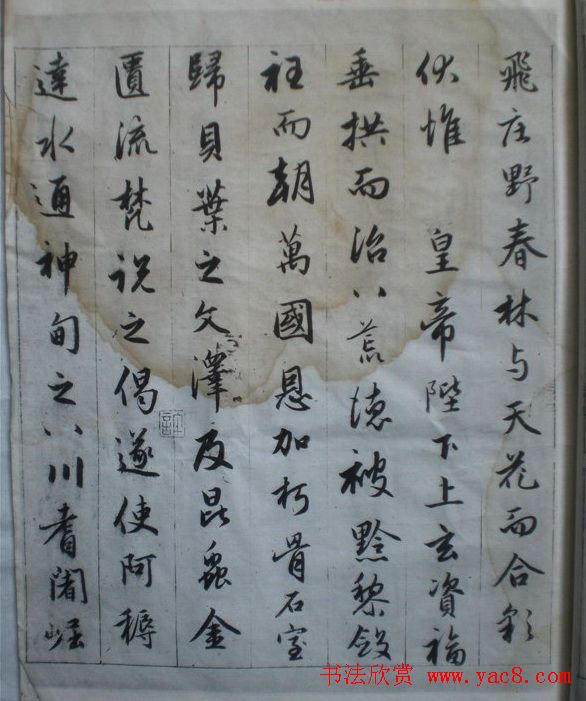 飛庄野春林与天花而合彩
伏惟 皇帝陛下上玄資福
垂拱而治八荒德被黔黎斂
衽而朝萬國恩加朽骨石室
歸貝葉之文澤及昆蟲金
匱流梵說之偈遂使阿耨
達水通神甸之八川耆闍崛
书法欣赏 www.yac8.com